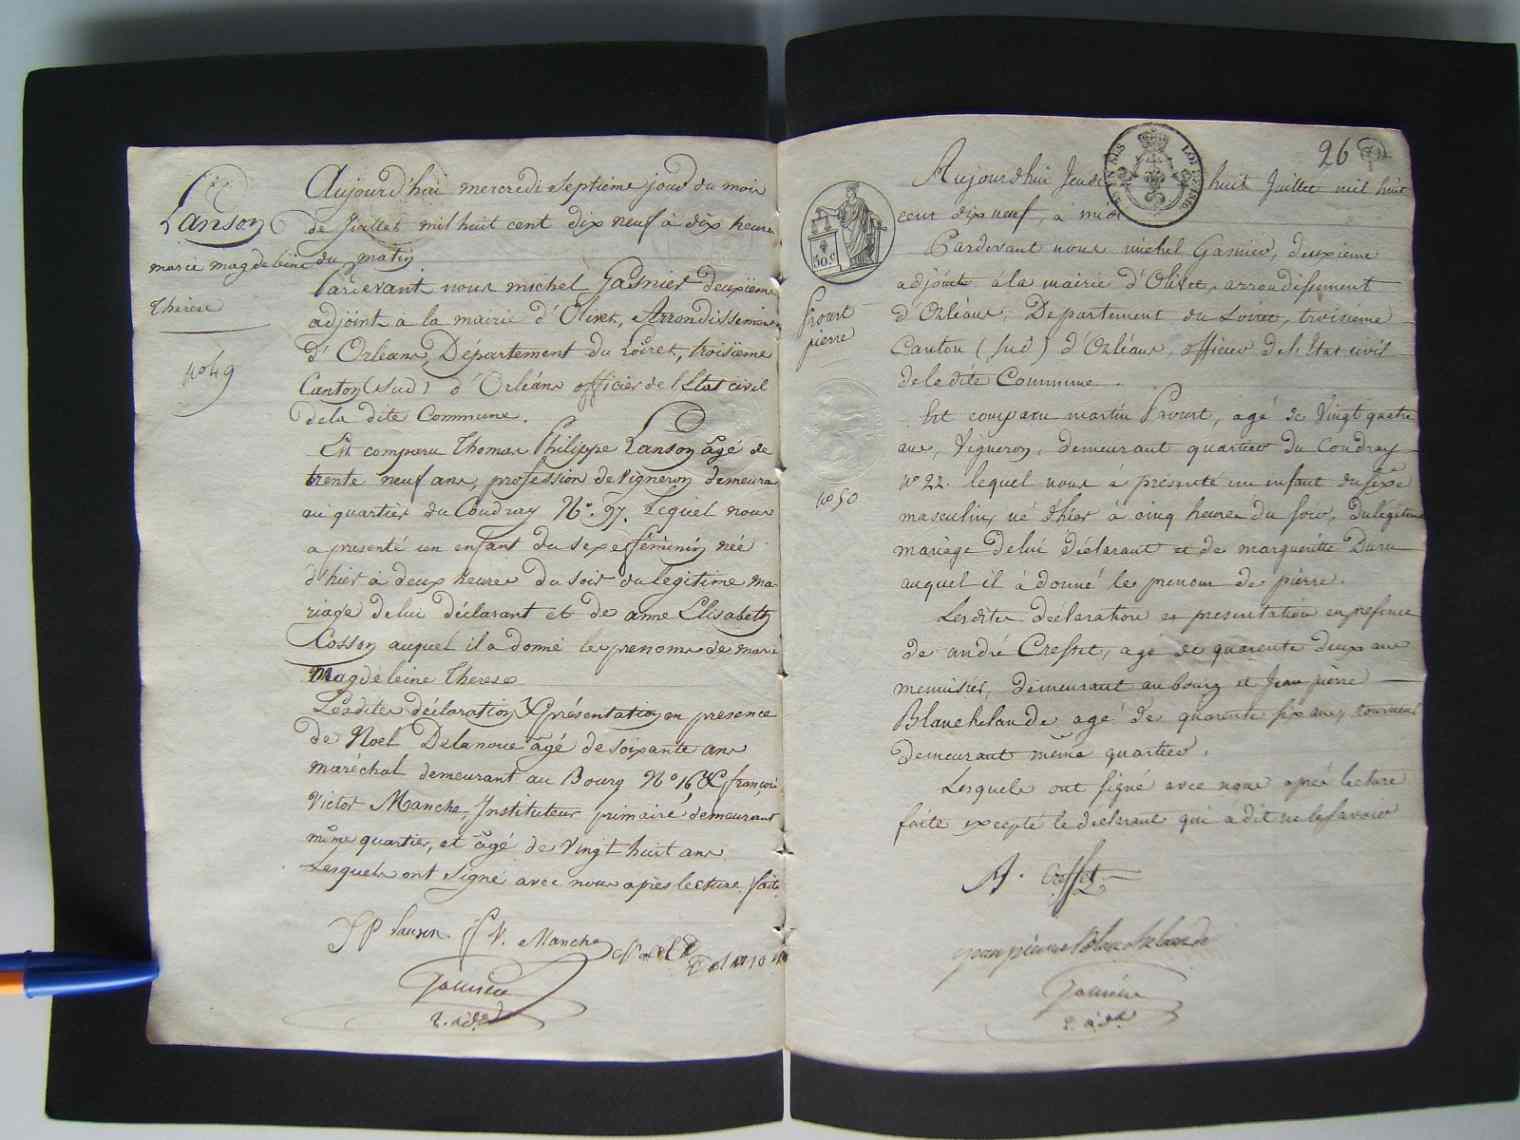 Lanson
marie magdeleine
Thérèse
No 49
Aujourd'hui mercredi septième jour du mois
de Juillet mil huit cent dix neuf à dix heures
du matin
Pardevant nous michel Gasnier deuxième
adjoint a la mairie d'Olivet, Arrondissement
d'Orléans, Département du Loiret, troisième
Canton (sud) d'Orléans officier de l'Etat civil
de la dite Commune.
Est comparu Thomas Philippe Lanson âgé de
trente neuf ans, profession de Vigneron demeurant
au quartier du Coudray No. 97. Lequel nous
a presenté un enfant du sexe féminin née
d'hier à deux heures du soir du legitime ma-
riage de lui déclarant et de anne Elisabeth
Cosson auquel il a donné les prenoms de marie
Magdeleine Thérèse
Lesdites déclaration & présentation en presence
de Noel Delanoue âgé de soixante ans
maréchal demeurant au Bourg No 16, & françois
Victor Manche, Instituteur primaire demeurant
même quartier, et âgé de vingt huit ans.
Lesquels ont signé avec nous après lecture faite
T P Lanson f. V. Manche Noel
Delanoue
Gasnier
2. adt
26
Aujourdhui Jeudi huit Juillet mil huit
cent dix neuf, à midi
Pardevant nous michel Gasnier, deuxieme
adjoint à la mairie d'Olivet, arrondissement
d'Orléans, Departement du Loiret, troisieme
Canton (sud) d'Orléans, officier de l'Etat civil
de la dite Commune.
Prout
pierre
No 50
50 c
Est comparu martin Prout, agé de Vingt quatre
ans, Vigneron, demeurant quartier du Coudray
No 22. lequel nous à présenté un enfant du sexe
masculin, né d'hier à cinq heures du soir, du légitime
mariage de lui déclarant et de marguerite Duru
auquel il à donné le prenom de pierre.
Lesdites déclaration et presentation en presence
de andré Cresset, agé de quarente deux ans
menuisier, demeurant au bourg et Jean pierre
Blanchelande agé de quarente six ans, tourneur
demeurant même quartier.
Lesquels ont signé avec nous après lecture
faite excepté le déclarant qui a dit ne le savoir
A. Cresset
jean pierre Blanchelande
Gasnier
2. adt